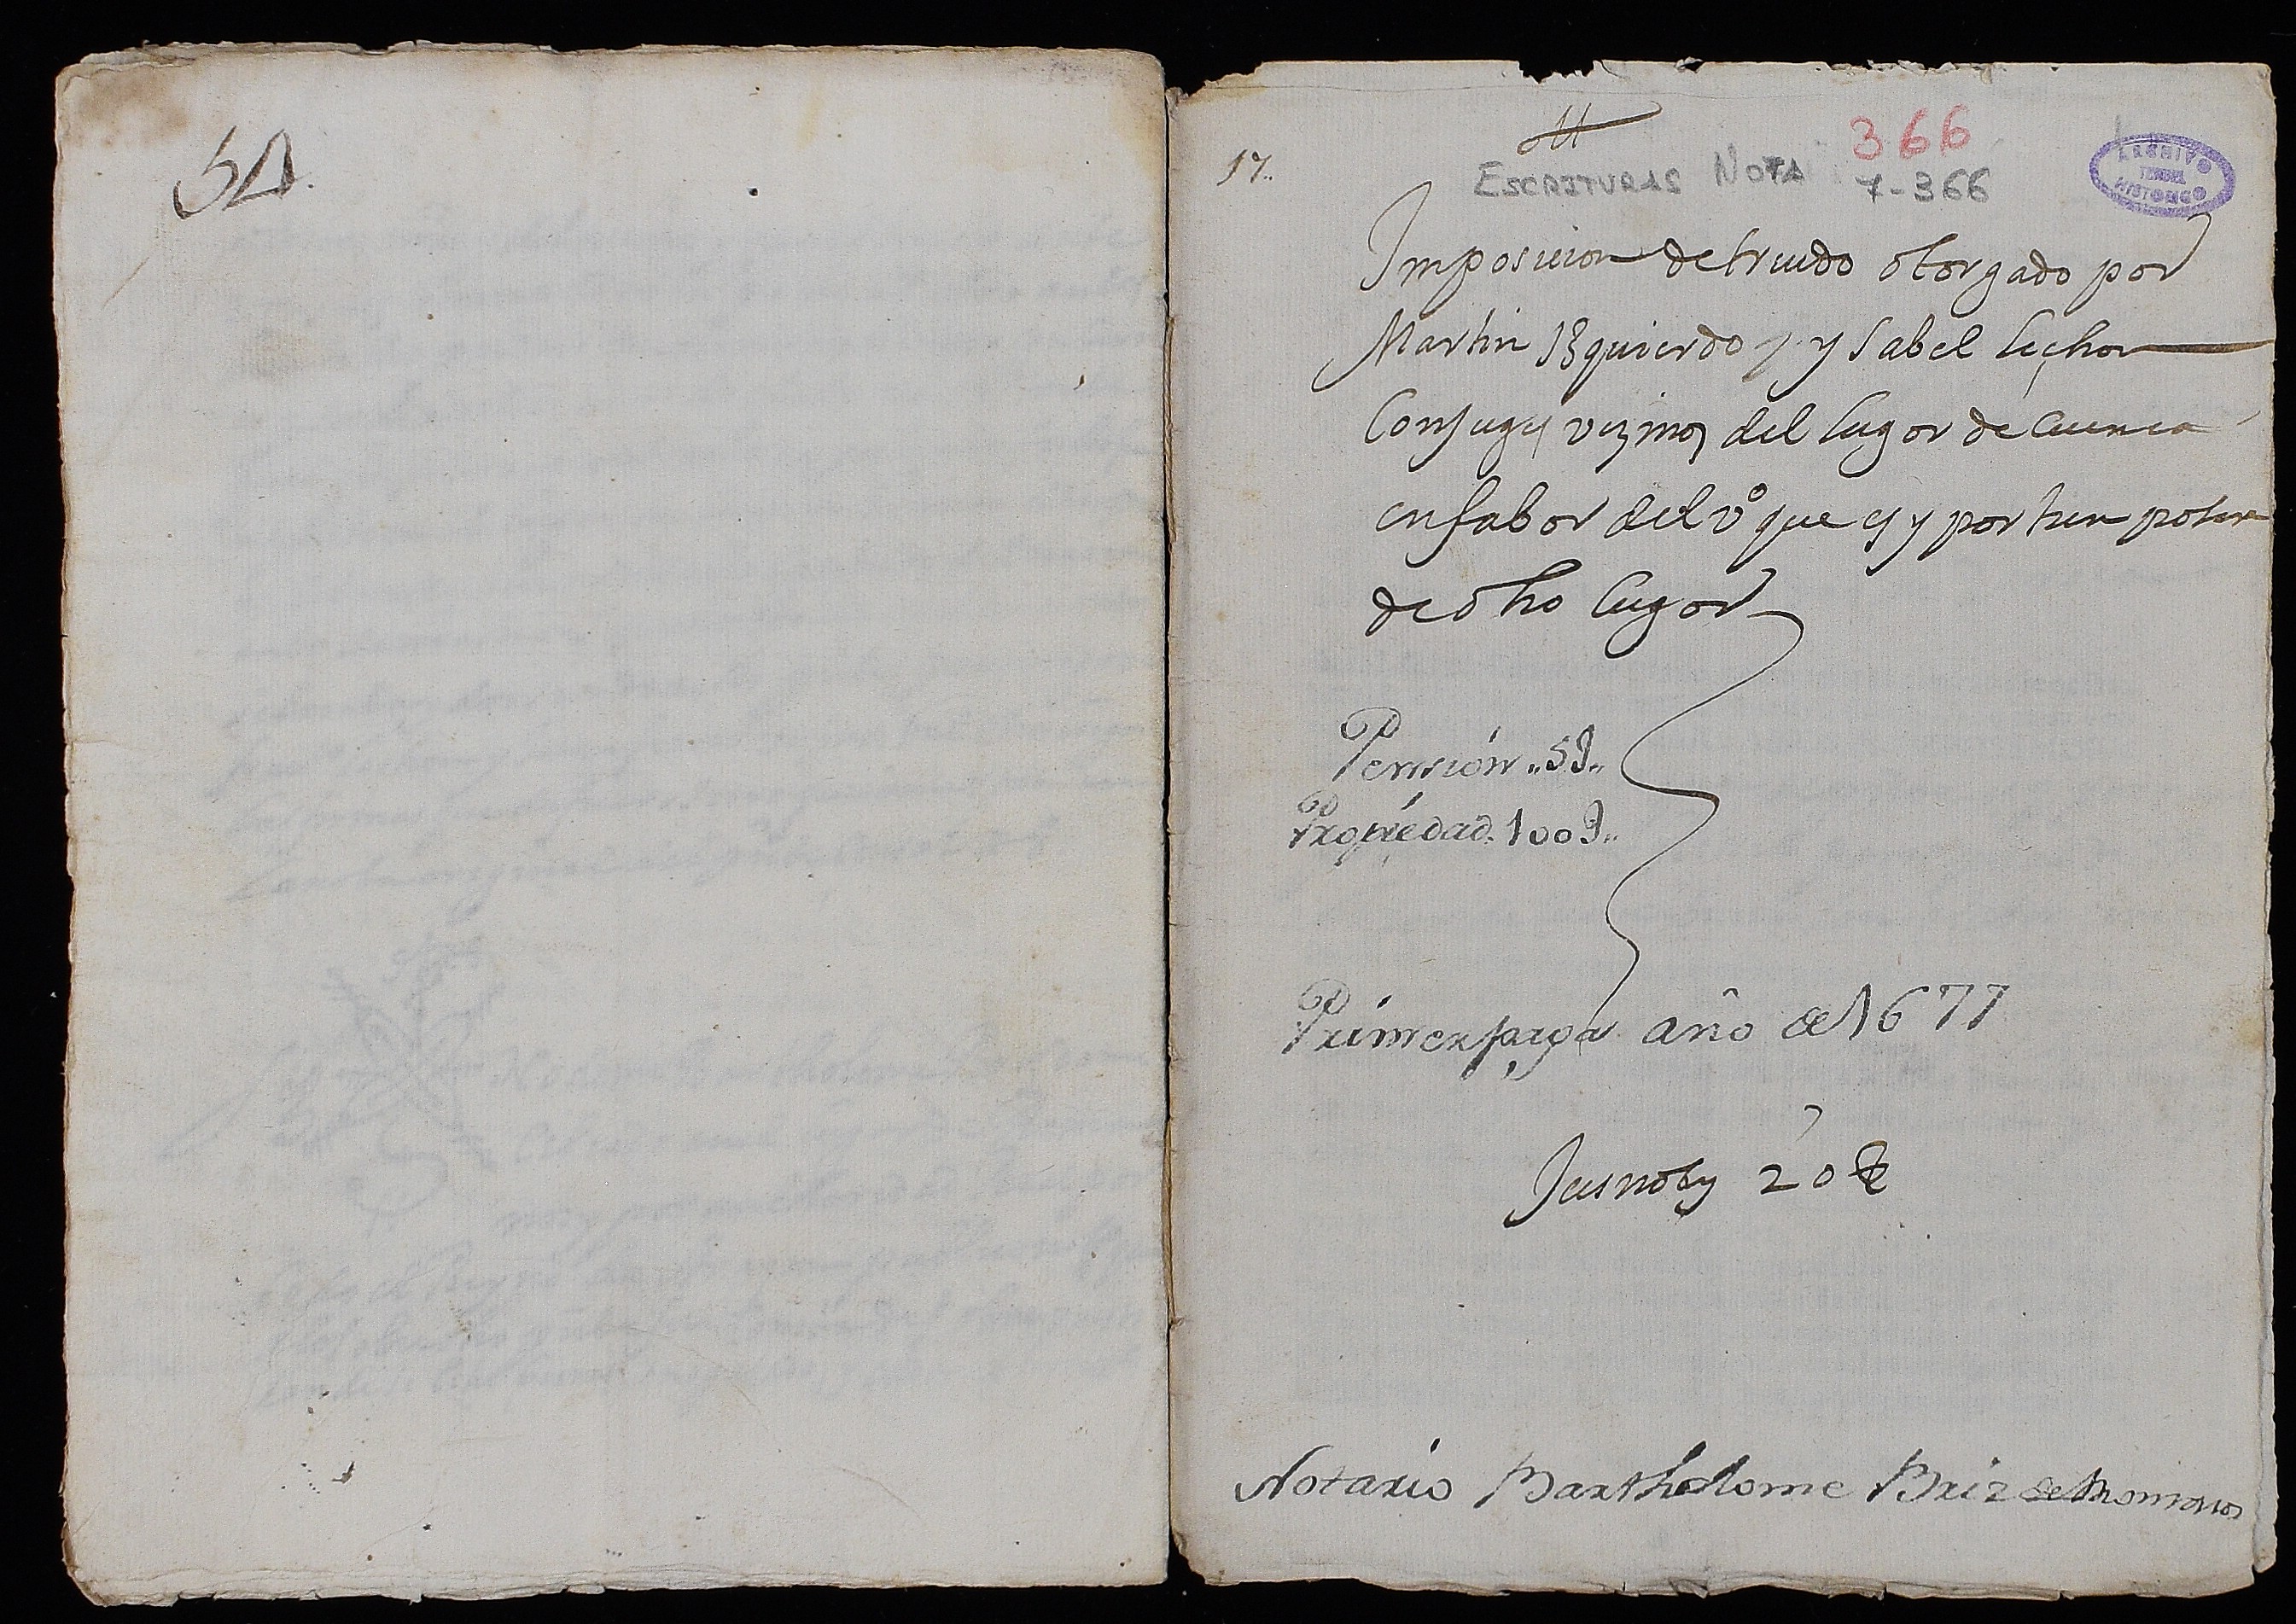 54.
17..
366
ESCRITURAS NOTA 7-366
ARCHIVO
TERUEL
HISTORICO
Imposicion de treudo otorgado por
Martin Izquierdo y ysabel lechon
Conjuges vezinos del lugar de Cuenca
en fabor del vo que es y por tienpo
de otro lugar
Pension..5
Propiedad. 100
Primer paga año de 1677
20
Notario Barthelome Briz